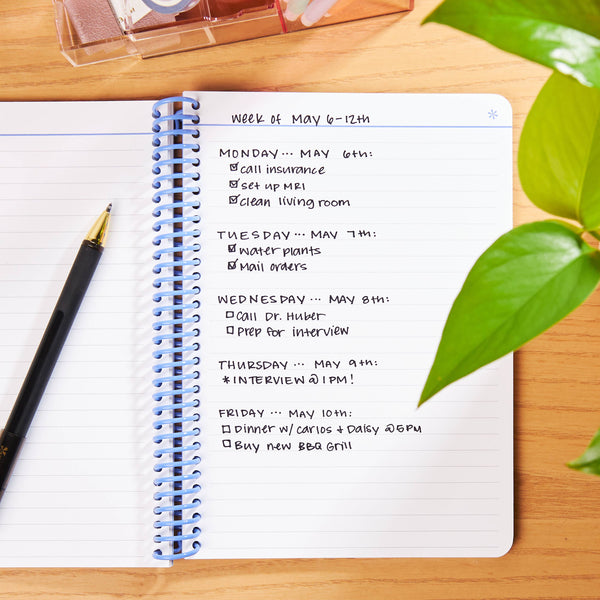 Week of May 6-12th
MONDAY... MAY 6th:
☑ call insurance
☑ set up MRI
☑ clean living room
TUESDAY... MAY 7th:
☑ Water plants
☑ Mail orders
WEDNESDAY... MAY 8th:
☐ Call Dr. Huber
☐ Prep for interview
THURSDAY... MAY 9th:
*INTERVIEW @ 1PM!
FRIDAY... MAY 10th:
☐ Dinner w/ carlos + Daisy @ 6PM
☐ Buy new BBQ Grill